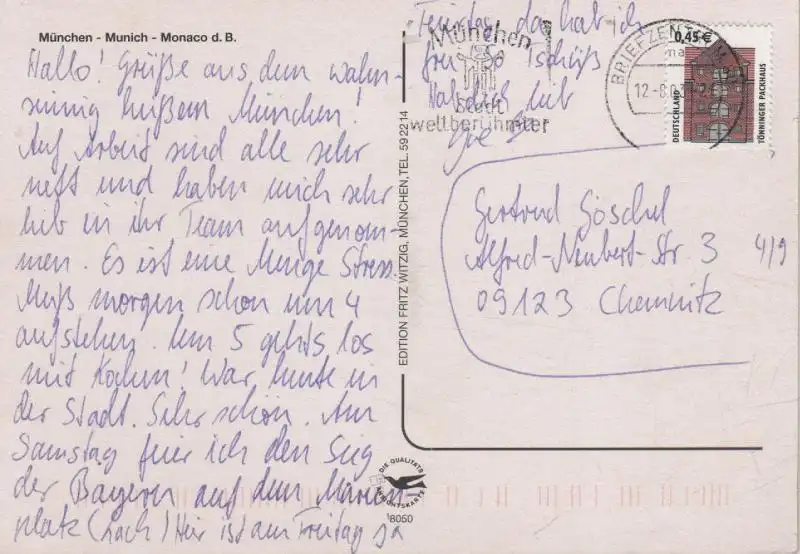 München - Munich - Monaco d. B.
Hallo! Grüße aus dem wahn-
sinnig heißem München!
Auf Arbeit sind alle sehr
nett und haben mich sehr
lieb in ihr Team aufgenom-
men. Es ist eine Menge Stress.
Muß morgen schon um 4
aufstehen. Um 5 gehts los
mit Kochen! War heute in
der Stadt. Sehr schön. Am
Samstag feier ich den Sieg
der Bayern auf dem Marien-
platz (Lach) Hier ist am Freitag ja
Feiertag da hab ich
frei so Tschüß
Hab dich lieb
EDITION FRITZ WITZIG, MÜNCHEN, TEL. 59 22 14
München
weltberühmter
BRIEFZENTRUM
0,45 €
DEUTSCHLAND
TÖNNINGER PACKHAUS
Gertrud Göschel
Alfred-Neubert-Str. 3 4/9
09123 Chemnitz
DIE QUALITÄTS
ANSICHTSKARTE
18050